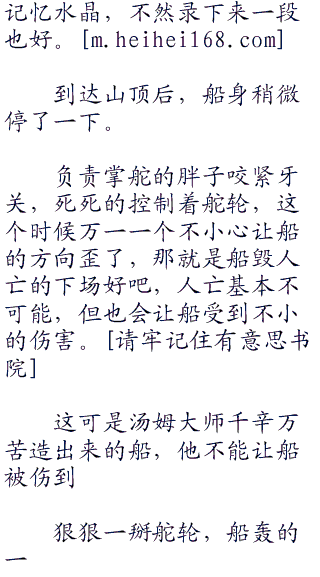 记忆水晶，不然录下来一段
也好。[m.heihei168.com]
到达山顶后，船身稍微
停了一下。
负责掌舵的胖子咬紧牙
关，死死的控制着舵轮，这
个时候万一一个不小心让船
的方向歪了，那就是船毁人
亡的下场好吧，人亡基本不
可能，但也会让船受到不小
的伤害。[请牢记住有意思书
院]
这可是汤姆大师千辛万
苦造出来的船，他不能让船
被伤到
狠狠一掰舵轮，船轰的
一